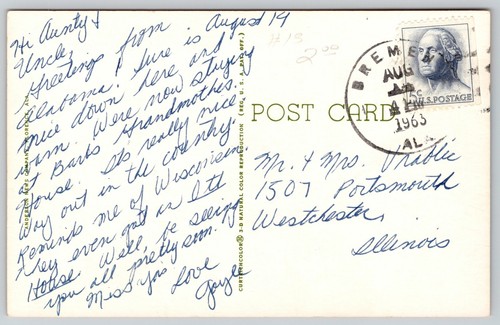 August 14
Hi Aunty &
Uncle,
Greetings from
Alabama. Sure is
nice down here and
warm. Were now staying
at Barb's Grandmothers
House. Its really nice
Way out in the country.
Reminds me of Wisconsin
They even got an Ott
House. Well, be seeing
you all pretty soon.
Miss you Love
Joyce
CURTEICHCOLOR® 3-D NATURAL COLOR REPRODUCTION (REG. U.S. PAT. OFF.)
#18
2.00
POST CARD
BREMEN
AUG
AM
1963
ALA.
U.S. POSTAGE
Mr. & Mrs. Vrablic
1507 Portsmouth
Westchester,
Illinois